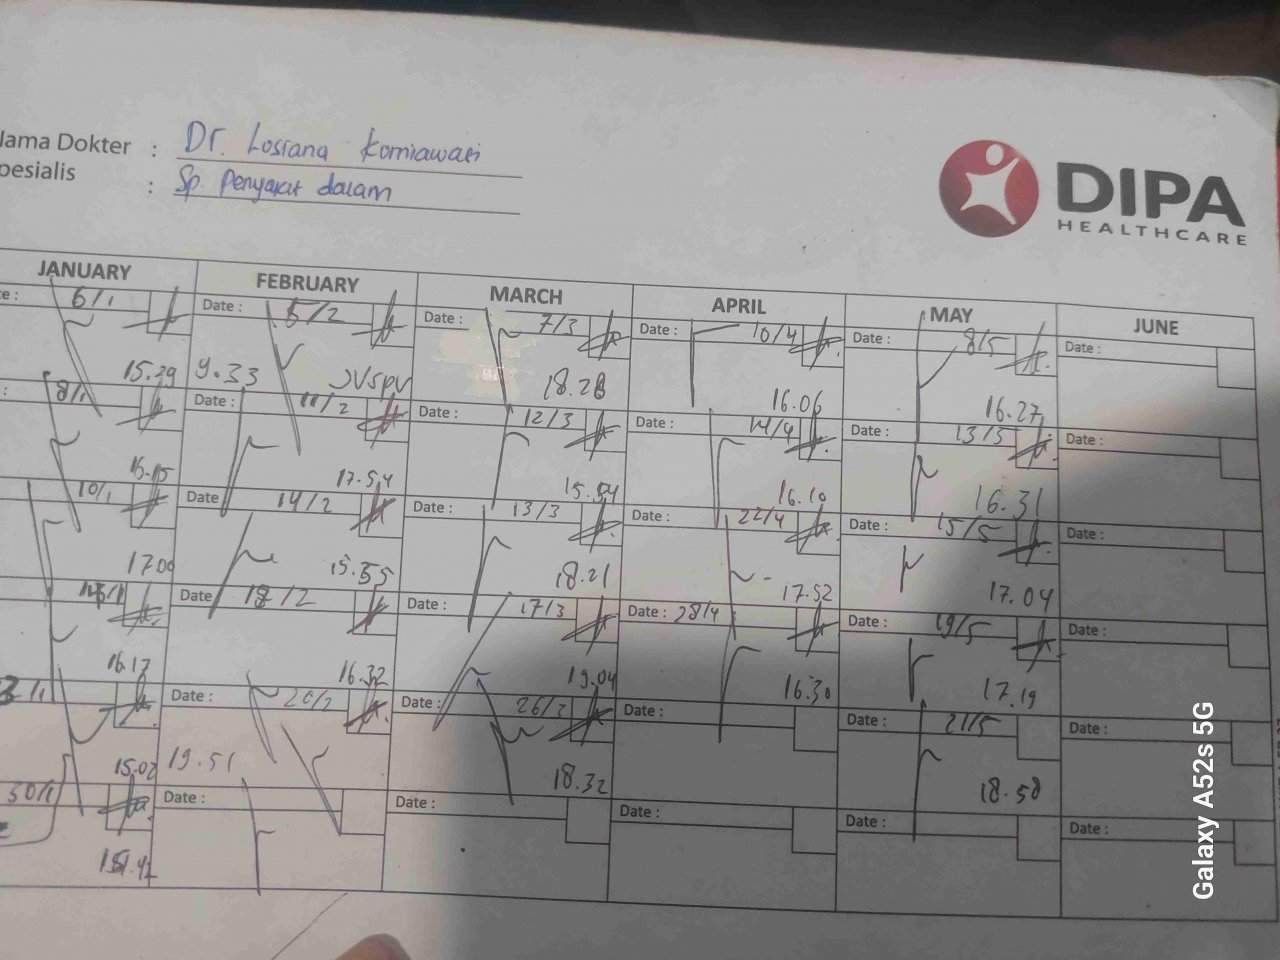 Nama Dokter : Dr. Losiana Korniawati
Spesialis : Sp. Penyakit dalam
DIPA
HEALTHCARE
JANUARY FEBRUARY MARCH APRIL MAY JUNE
6/1 Date : 5/2 Date : 7/3 Date : 10/4 Date : 8/5 Date :
15.29 9.33 JVSPV 18.28 16.06 16.27
8/1 Date : 11/2 Date : 12/3 Date : 14/4 Date : 13/5 Date :
16.15 17.54 15.54 16.10 16.31
10/1 Date 14/2 Date : 13/3 Date : 22/4 Date : 15/5 Date :
17.00 15.35 18.21 17.52 17.04
Date 18/2 Date : 17/3 Date : 28/4 Date : 19/5 Date :
16.17 16.32 19.04 16.30 17.19
Date : 20/2 Date : 26/3 Date : Date : 21/5 Date :
15.02 19.51 18.32 18.58
30/1 Date : Date : Date : Date : Date :
Galaxy A52s 5G